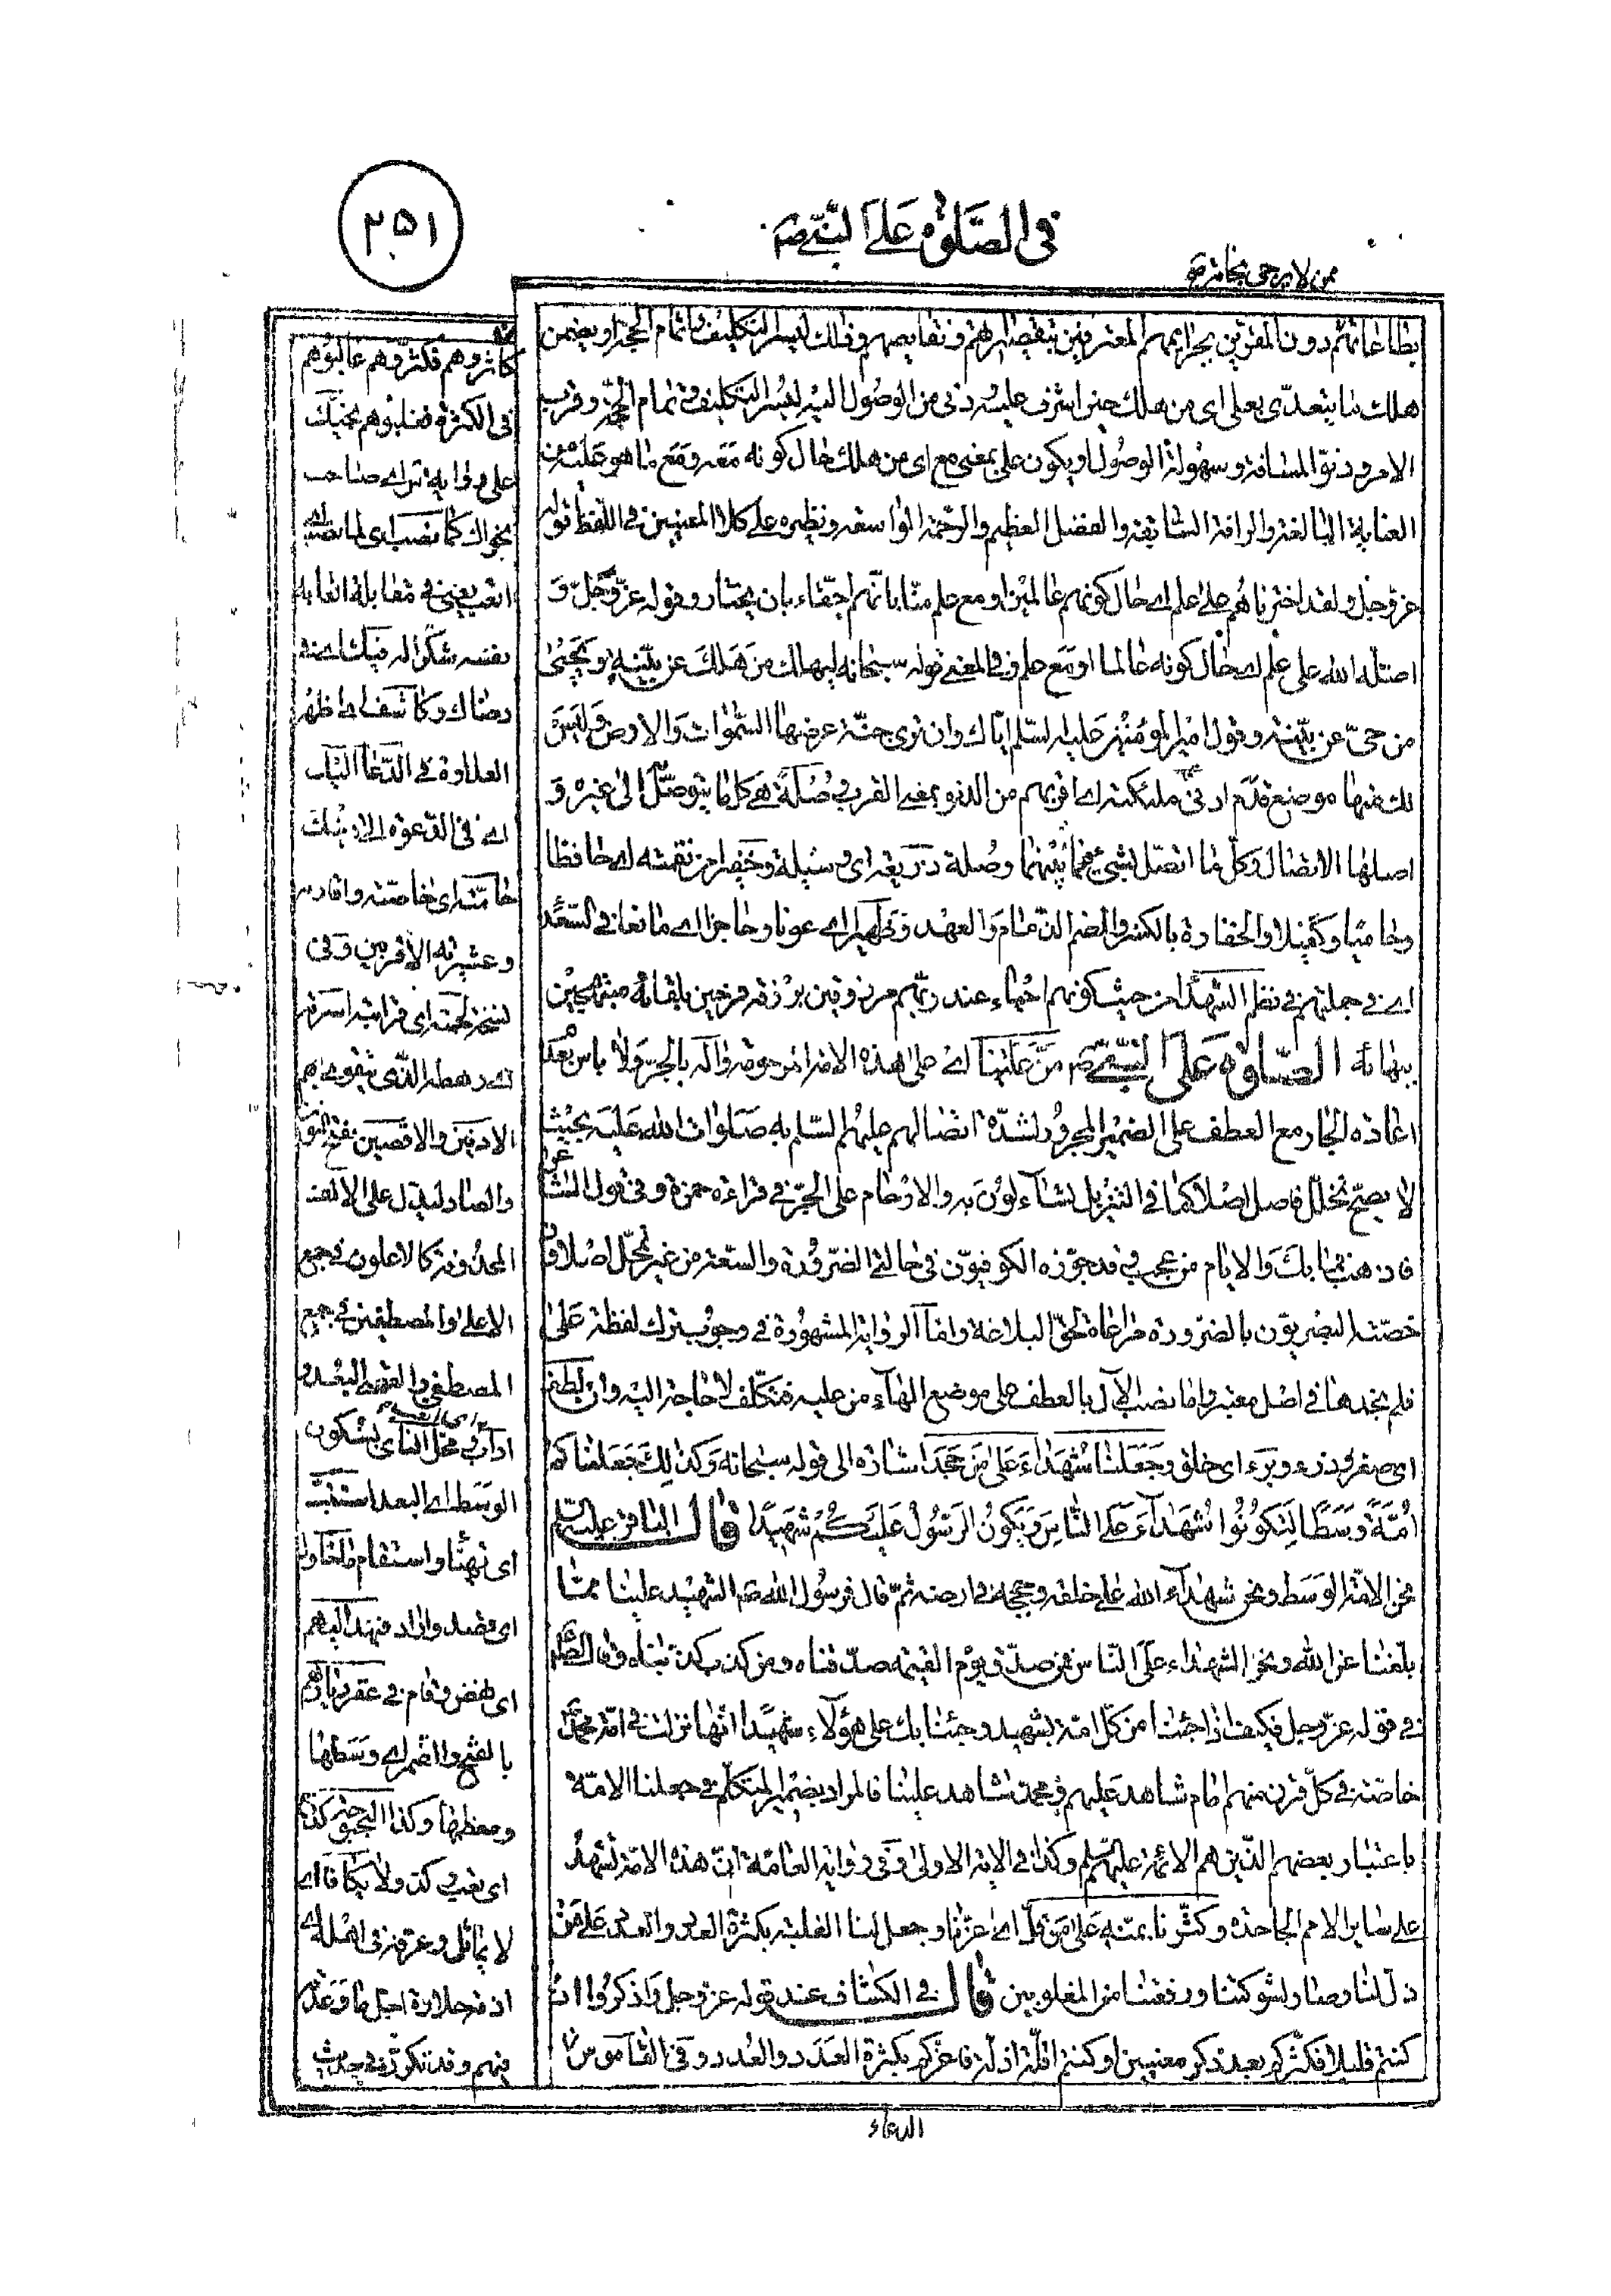 ٢٥١
في الصلوة على النبي ص
بطاعاتهم دون المقرين بجرايمهم المعترفين بتقصيرهم ونقايصهم وذلك ليسر التكليف واتمام الحجة او يضمن
هلك ما يتعدى بعلى اى من هلك حين اشرف عليه ودنى من الوصول اليه ليسر التكليف وتمام الحجة وقرب
الامر ودنو المسافة وسهولة الوصول او يكون على بمعنى مع اى من هلك حال كونه معه ومع ما هو عليه من
العناية البالغة والرافة السابقة والفضل العظيم والرحمة الواسعة ونظيره على كلا المعنيين في اللفظ قوله
عز وجل ولقد اخترناهم على علم اى حال كونهم عالمين او مع علم منا بانهم احقاء بان يختاروا وقوله عز وجل و
اضله الله على علم اى حال كونه عالما او مع علم وفي المعنى قوله سبحانه ليهلك من هلك عن بينة ويحيى
من حى عن بينة وقول امير المؤمنين عليه السلم اياك وان ترى جنة عرضها السموات والارض وليس
لك فيها موضع قدم ادنى ملئكته اى اقربهم من الدنو بمعنى القرب وصلة هى كل ما يتوصل الى غيره و
اصلها الاتصال وكل ما اتصل بشئ فما بينهما وصلة ذريعة اى وسيلة وخفيرا من نقمته اى حافظا
وحاميا وكفيلا والخفارة بالكسر والضم الذمام والعهد وظهيرا اى عونا وحاجزا اى مانعا في السعداء
اى في جملتهم في نظم الشهداء من حيث كونهم احياء عند ربهم مرزوقين برزقه فرحين بلقائه مبتهجين
ببهائه الصلوة على النبي ص من علينا اى على هذه الامة المرحومة وآله بالجر ولا باس بعدم
اعادة الجار مع العطف على الضمير المجرور لشدة اتصالهم عليهم السلم به صلوات الله عليه بحيث
لا يصح تخلل فاصل اصلا كما في التنزيل تساءلون به والارحام على الجر في قراءة حمزة وفي قول الشاعر
فاذهب فما بك والايام من عجب وقد جوزه الكوفيون في حالتى الضرورة والسعة من غير تمحل اصلا وان
خصته البصريون بالضرورة مراعاة لحق البلاغة واما الرواية المشهورة في وجوب ترك لفظة على
فلم نجدها في اصل معتبر واما نصب الآل بالعطف على موضع الهاء من عليه فتكلف لا حاجة اليه وان لطف
اى صغر وذرء وبرء اى خلق وجعلنا شهداء على من جحد اشارة الى قوله سبحانه وكذلك جعلناكم
امة وسطا لتكونوا شهداء على الناس ويكون الرسول عليكم شهيدا قال الباقر عليه السلم
نحن الامة الوسط ونحن شهداء الله على خلقه وحججه في ارضه ثم قال فرسول الله ص الشهيد علينا بما
بلغنا عن الله ونحن الشهداء على الناس فمن صدق يوم القيمة صدقناه ومن كذب كذبناه وقال الصادق
في قوله عز وجل فكيف اذا جئنا من كل امة بشهيد وجئنا بك على هؤلاء شهيدا انها نزلت في امة محمد
خاصة في كل قرن منهم امام شاهد عليهم ومحمد شاهد علينا فالمراد بضمير المتكلم في جعلنا الامة
باعتبار بعضهم الذين هم الائمة عليهم السلم وكذا في الاية الاولى وفي رواية العامة ان هذه الامة تشهد
على ساير الامم الجاحدة وكثرنا بمنه على من قل اى عززنا وجعل لنا الغلبة بكثرة العدد والعدد على من
ذل لنا وصار لشوكتنا ورفعتنا من المغلوبين قال في الكشاف عند قوله عز وجل واذكروا اذ
كنتم قليلا فكثركم بعد ذكر معنيين او كنتم اقلة اذلة فاعزكم بكثرة العدد والعدد وفي القاموس
كاثروهم فكثروهم غالبوهم
في الكثرة فغلبوهم نجيك
على رواية س اى صاحب
نجواك كما نصب اى لما نصب
اتعب يعنى في مقابلة اتعابه
نفسه شكرا له فيك اى في
رضاك وكاشف اى اظهر
العداوة في الدعاء اليك
اى في الدعوة الى دينك
حامته اى خاصته واقاربه
وعشيرته الاقربين وفي
نسخة لحمته اى قرابته اسرته
اى رهطه الذى يتقوى بهم
الادنين والاقصين بفتح النون
والصاد ليدل على الالف
المحذوفة كالاعلون في جمع
الاعلى والمصطفين في جمع
المصطفى والقصى البعد و
ادأب في محل النأى بسكون
الوسط اى البعد استتب
اى تهيئا واستقام ما حاول
اى قصد واراد فنهد اليهم
اى نهض وقام في عقر ديارهم
بالفتح والضم اى وسطها
ومعظمها وكذا البحبوحة كدح
اى تعب وكد ولا يكافا اى
لا يماثل وعرفه في اهله
فيهم وقد تكرر في حديث
الدعاء